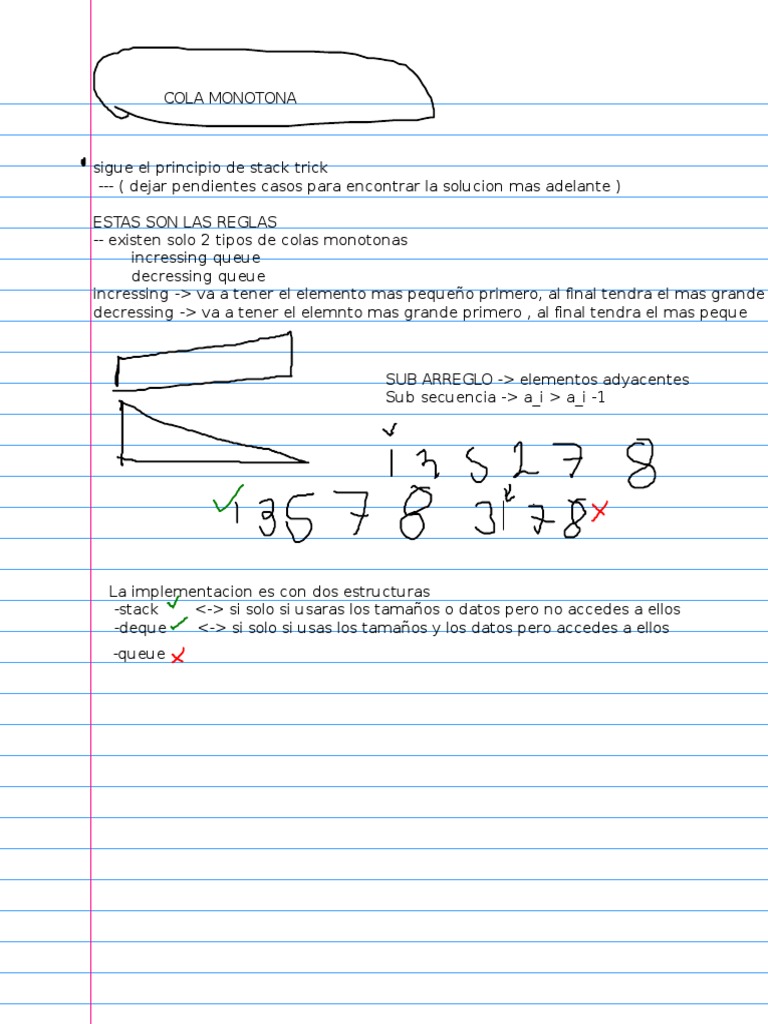 COLA MONOTONA
sigue el principio de stack trick
--- ( dejar pendientes casos para encontrar la solucion mas adelante )
ESTAS SON LAS REGLAS
-- existen solo 2 tipos de colas monotonas
incressing queue
decressing queue
incressing -> va a tener el elemento mas pequeño primero, al final tendra el mas grande
decressing -> va a tener el elemnto mas grande primero , al final tendra el mas peque
SUB ARREGLO -> elementos adyacentes
Sub secuencia -> a_i > a_i -1
1 3 5 2 7 8
1 3 5 7 8 3 1 7 8
La implementacion es con dos estructuras
-stack <-> si solo si usaras los tamaños o datos pero no accedes a ellos
-deque <-> si solo si usas los tamaños y los datos pero accedes a ellos
-queue